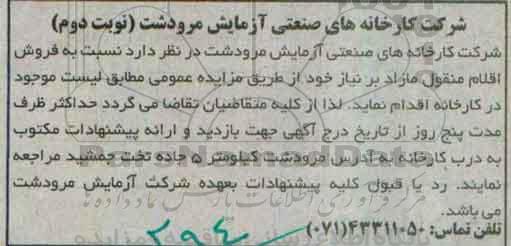 شرکت کارخانه های صنعتی آزمایش مرودشت (نوبت دوم)
شرکت کارخانه های صنعتی آزمایش مرودشت در نظر دارد نسبت به فروش
اقلام منقول مازاد بر نیاز خود از طریق مزایده عمومی مطابق لیست موجود
در کارخانه اقدام نماید. لذا از کلیه متقاضیان تقاضا می گردد حداکثر ظرف
مدت پنج روز از تاریخ درج آگهی جهت بازدید و ارائه پیشنهادات مکتوب
به درب کارخانه به آدرس مرودشت کیلومتر ۵ جاده تخت جمشید مراجعه
نمایند. رد یا قبول کلیه پیشنهادات بعهده شرکت آزمایش مرودشت
می باشد.
تلفن تماس: ۴۳۳۱۱۰۵۰(۰۷۱)
۲۹۴